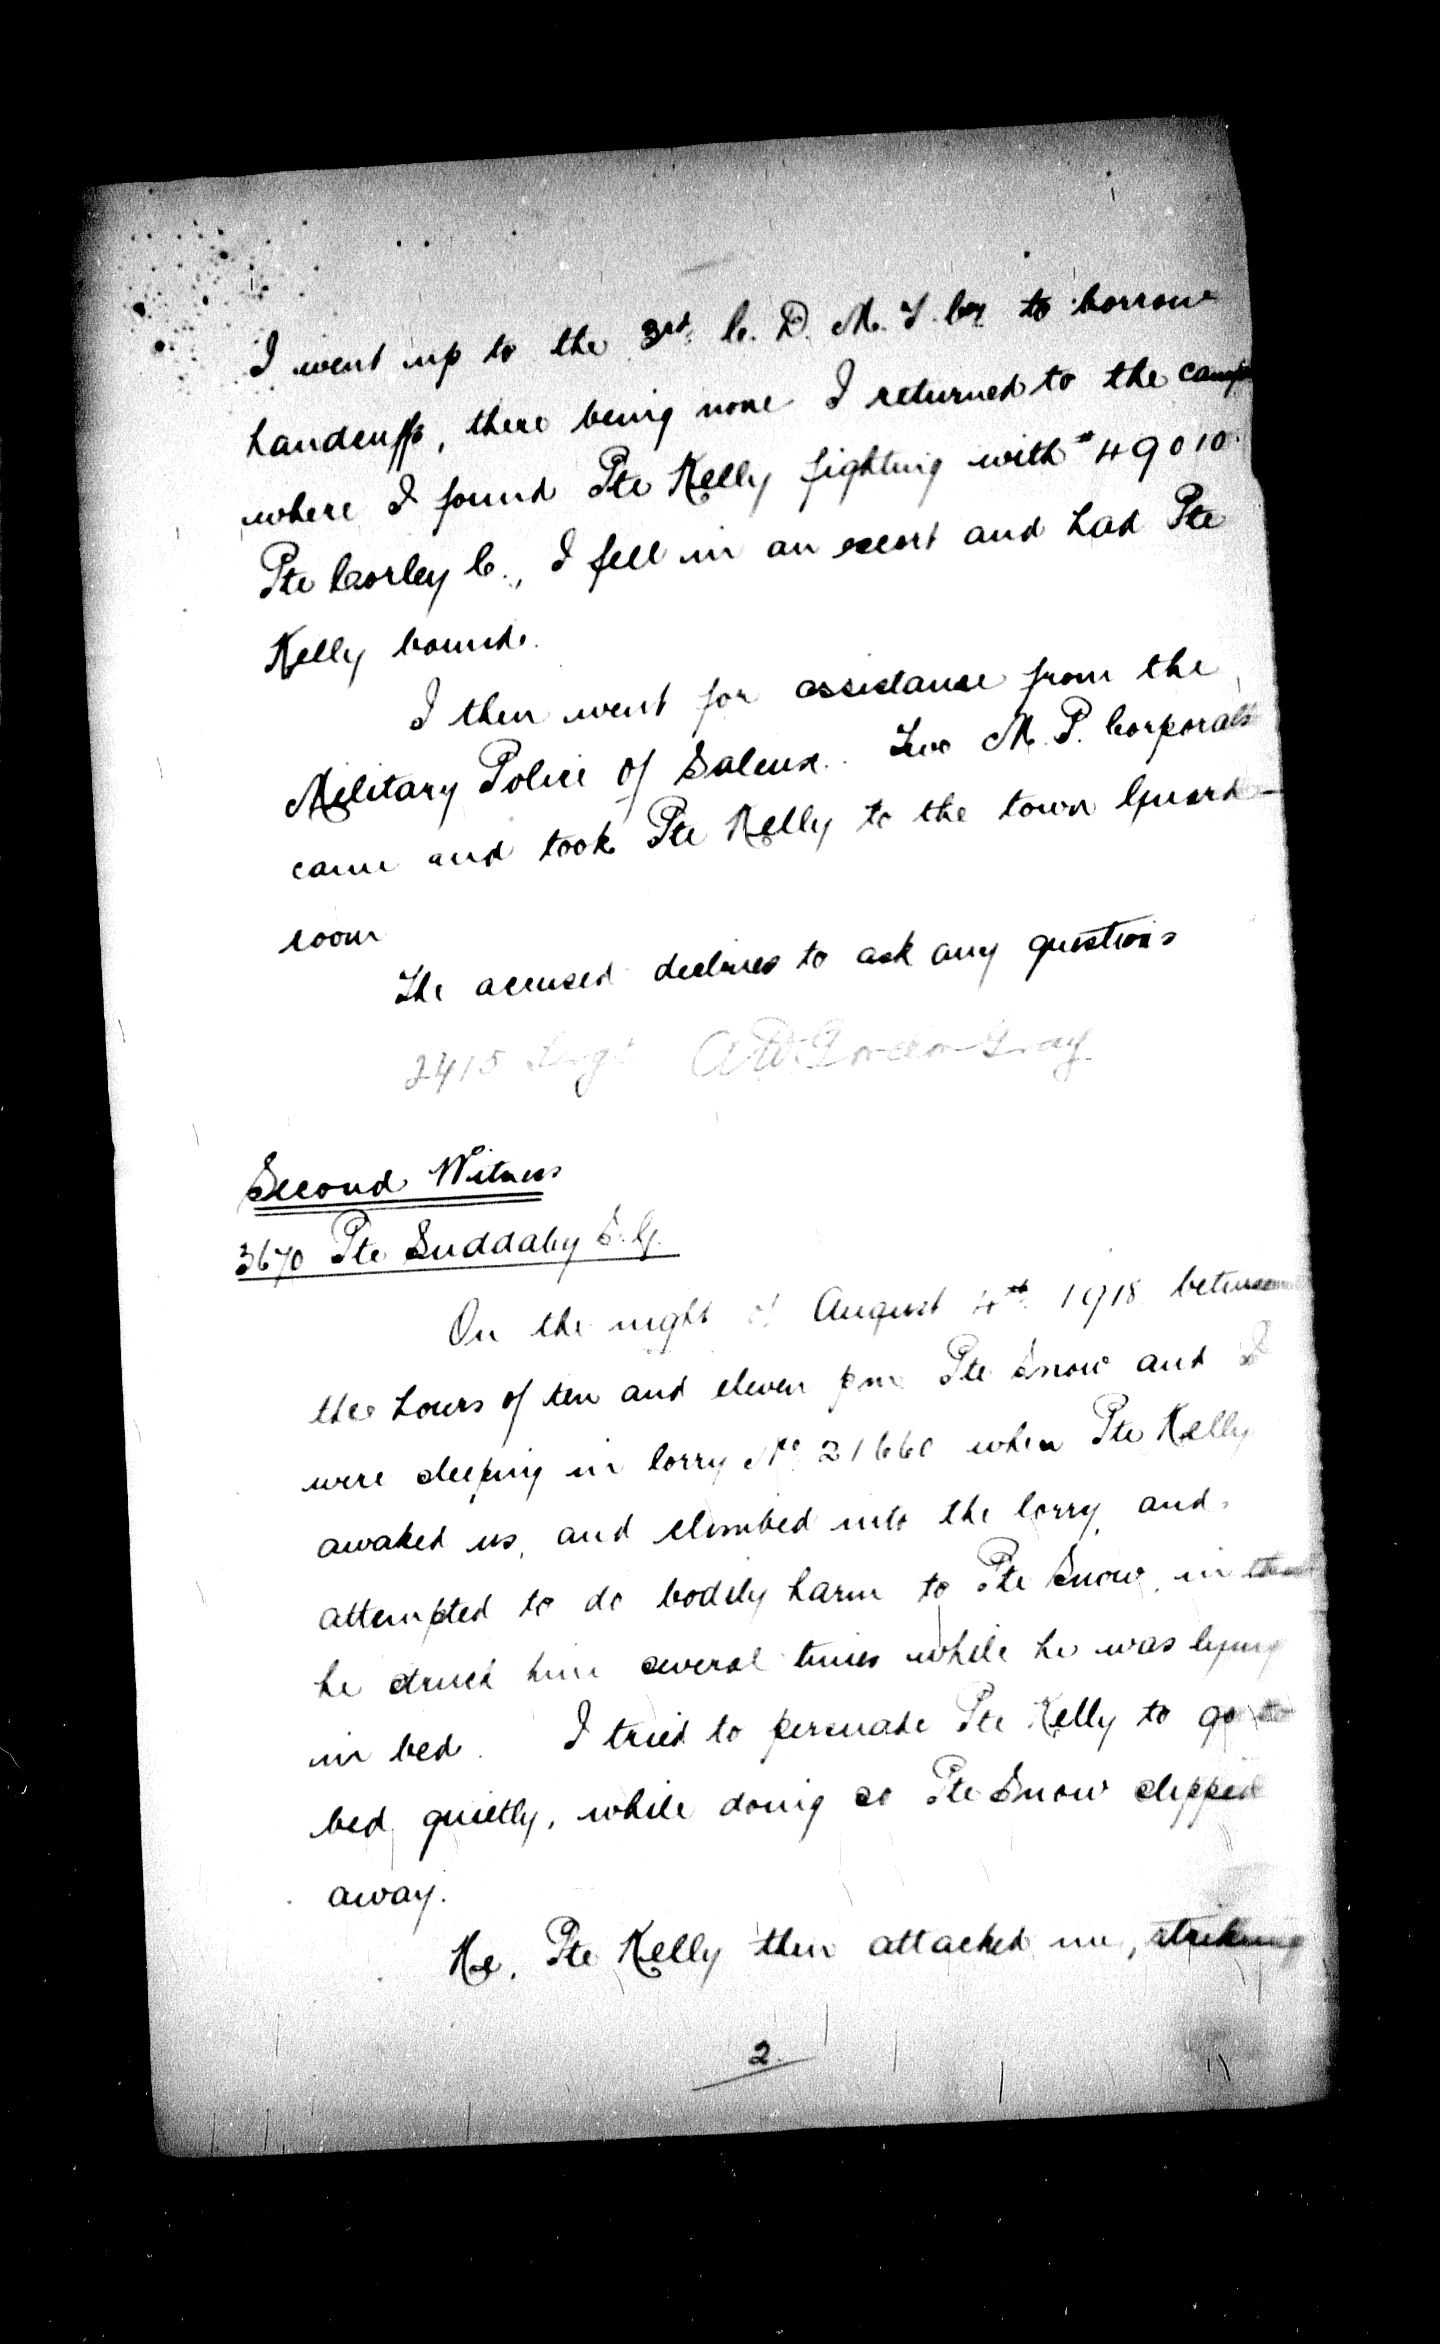 I went up to the 3rd C. D. M. T. Coy to borrow
handcuffs, there being none I returned to the camp
where I found Pte Kelly fighting with #49010
Pte Corley C., I fell in an escort and had Pte
Kelly bound.
I then went for assistance from the
Military Police of Saleux. Two M. P. Corporals
came and took Pte Kelly to the town Guard-
room
The accused declines to ask any questions
2415 Sergt A W Gordon Gray
Second Witness
3670 Pte Suddaby S. G.
On the night of August 4th 1918 between
the hours of ten and eleven pm Pte Snow and I
were sleeping in lorry No 21660 when Pte Kelly
awaked us, and climbed into the lorry, and
attempted to do bodily harm to Pte Snow, in that
he struck him several times while he was lying
in bed. I tried to persuade Pte Kelly to go to
bed quietly, while doing so Pte Snow slipped
away.
He, Pte Kelly then attacked me, striking
2.